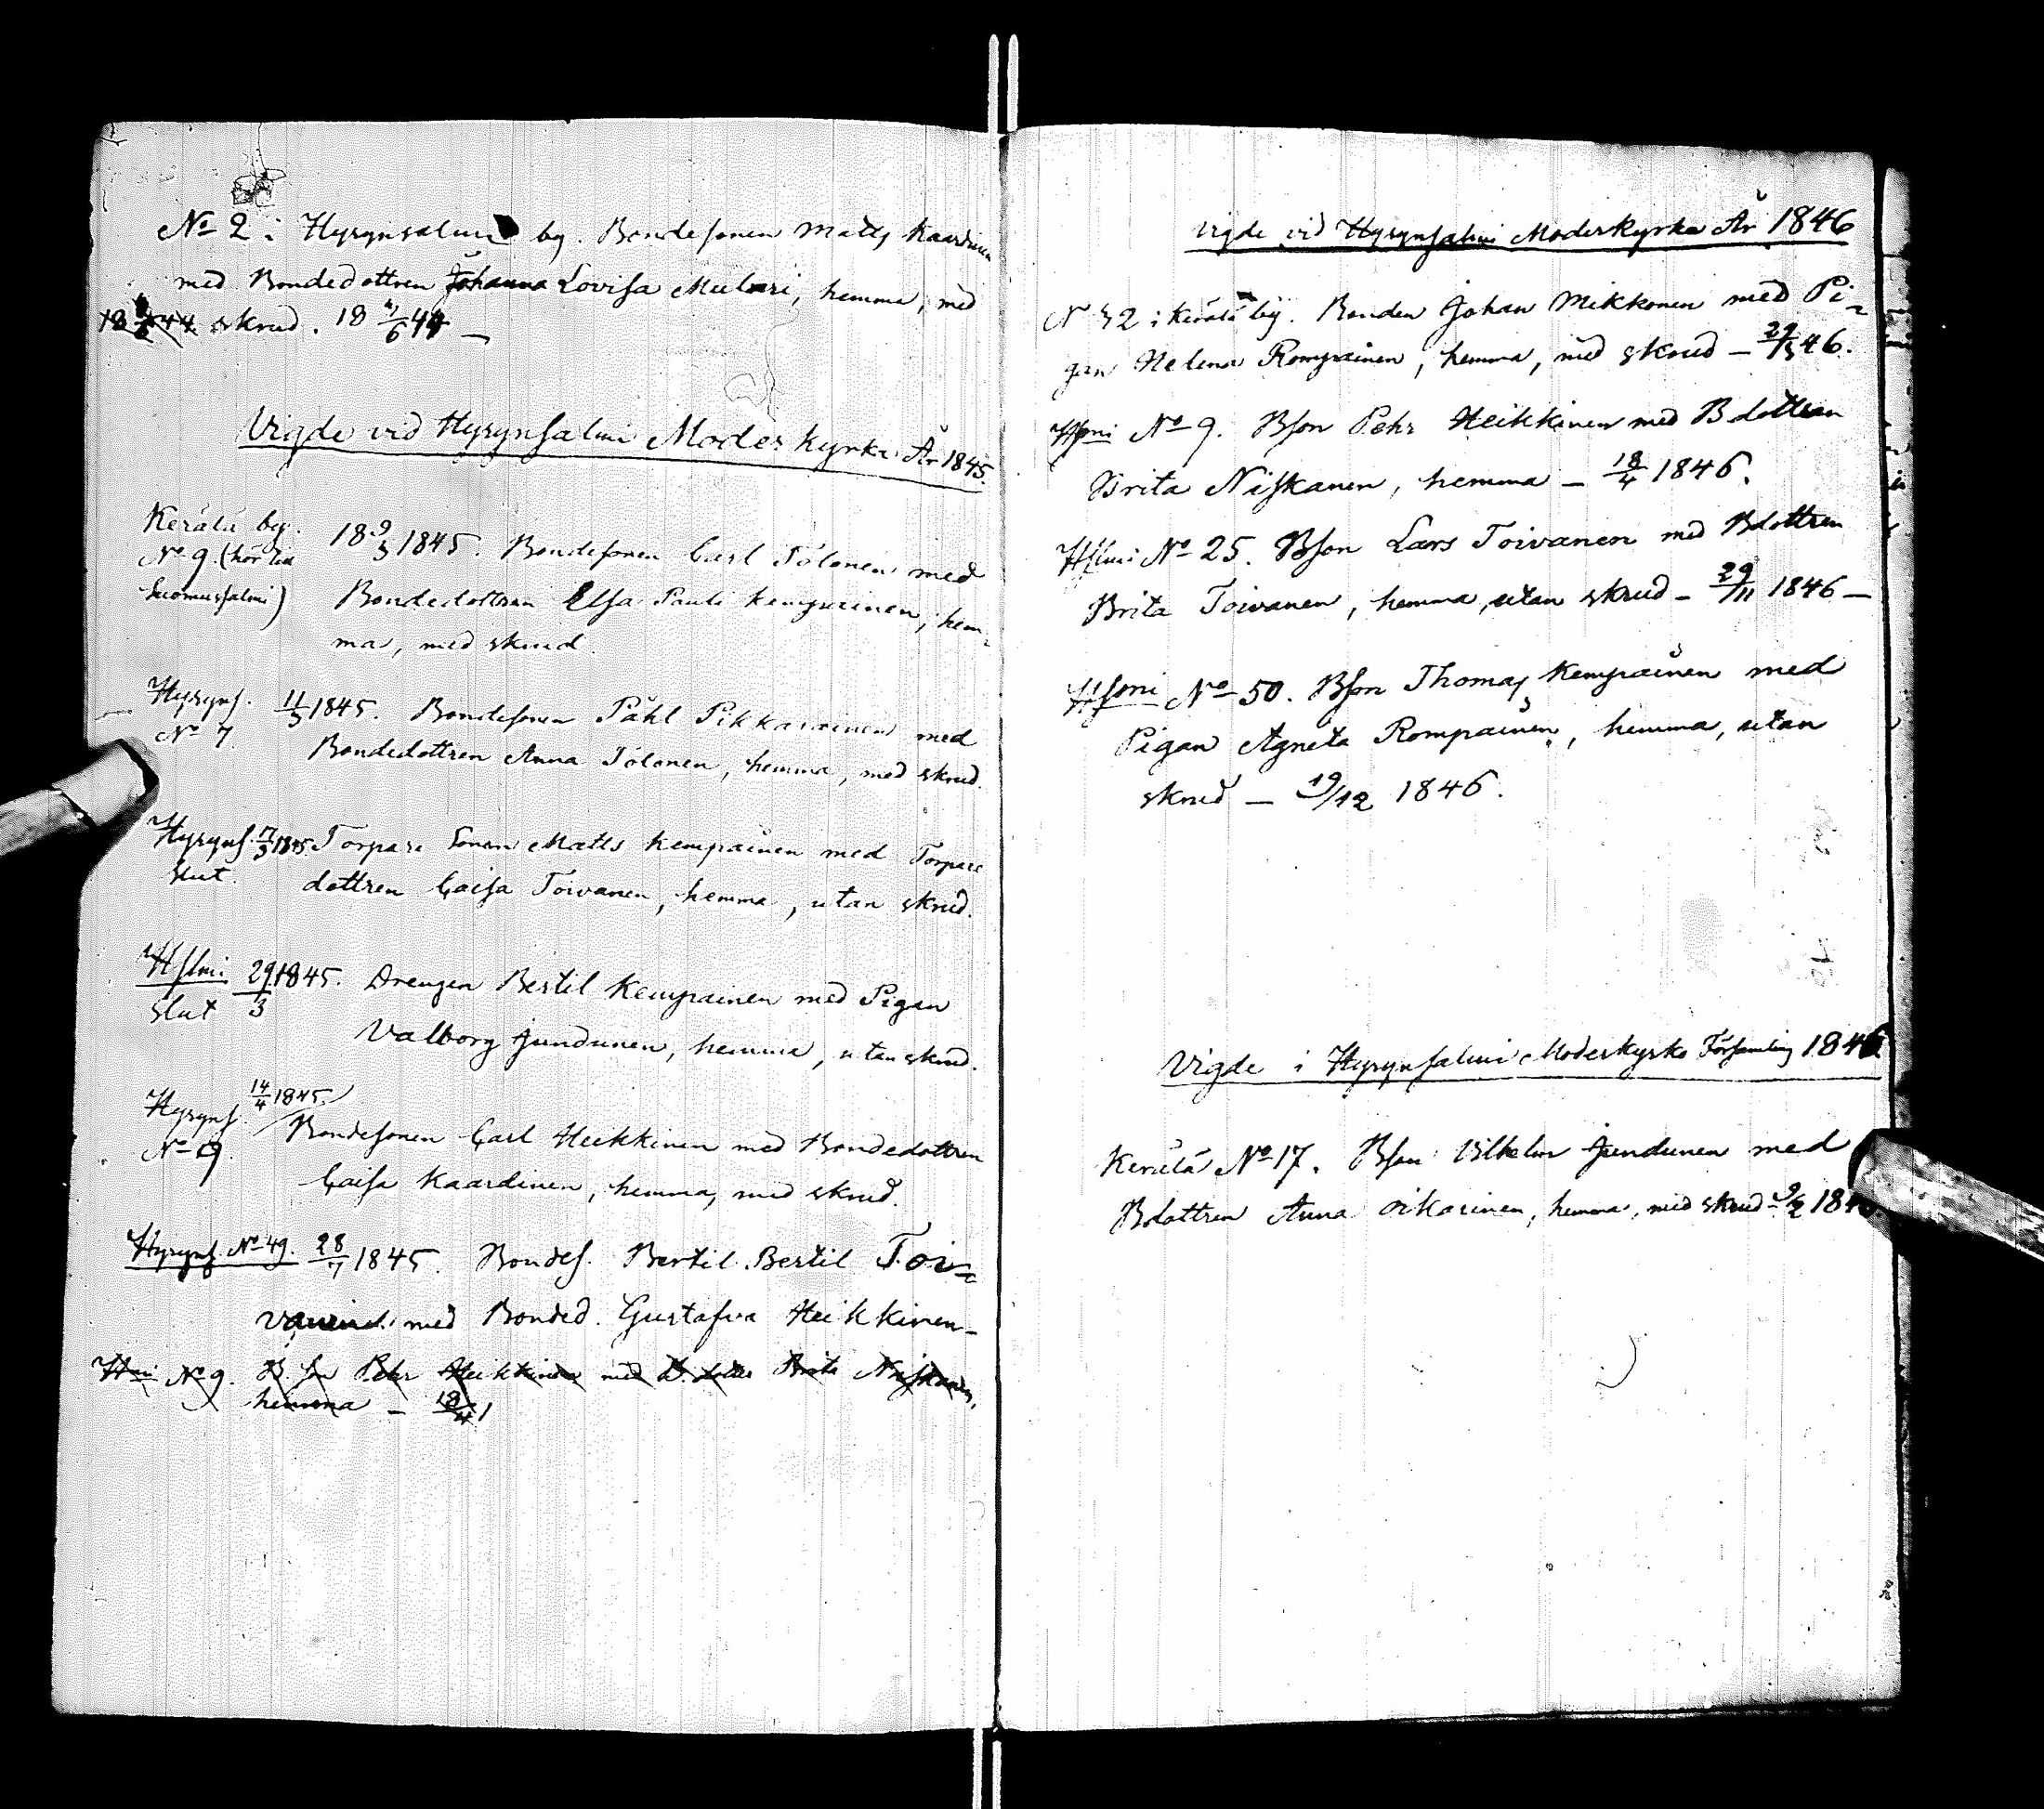 No 2 i Hyrynsalmi by. Bondesonen Matts Kaardinen
med Bondedottren Johanna Lovisa Mulari, hemma, med
skrud. 18 4/6 44 —
Vigde vid Hyrynsalmi Moderkyrka År 1845.
Kerälä by. 18 9/3 1845. Bondesonen Carl Tolonen med
No 9 (hör till
Suomussalmi) Bondedottren Elsa Pauli Kempainen, hem-
ma, med skrud.
Hyryns. 11/3 1845. Bondesonen Påhl Pikkarainen med
No 7. Bondedottren Anna Tolonen, hemma, med skrud.
Hyryns. 17/3 1845. Torpare Sonen Matts Kempainen med Torpare
slut. dottren Caisa Toivanen, hemma, utan skrud.
Hslmi 29/3 1845. Drengen Bertil Kempainen med Pigan
slut Valborg Jundunen, hemma, utan skrud.
14/4 1845.
Hyryns. Bondesonen Carl Heikkinen med Bondedottren
No 19. Caisa Kaardinen, hemma, med skrud.
Hyryns. No 49. 28/7 1845. Bondes. Bertil Bertil Toi-
med Bonded. Gustafva Heikkinen-
No 9. B. son Pehr Heikkinen med B. dotter Brita Niskanen,
hemma — 18/4
Vigde vid Hyrynsalmi Moderkyrka År 1846
N 32 i Kerälä by. Bonden Johan Mikkonen med Pi-
gan Helena Rompainen, hemma, med skrud — 29/3 46.
Hsmi No 9. Bson Pehr Heikkinen med Bdottren
Brita Niskanen, hemma — 18/4 1846.
Hslmi No 25. Bson Lars Toivanen med Bdottren
Brita Toivanen, hemma, utan skrud — 29/11 1846 —
Hsmi No 50. Bson Thomas Kempainen med
Pigan Agneta Rompainen, hemma, utan
skrud — 19/12 1846.
Vigde i Hyrynsalmi Moderkyrko Församling 1846
Kerälä No 17. Bson Vilhelm Jundunen med
Bdottren Anna Oikarinen, hemma, med skrud